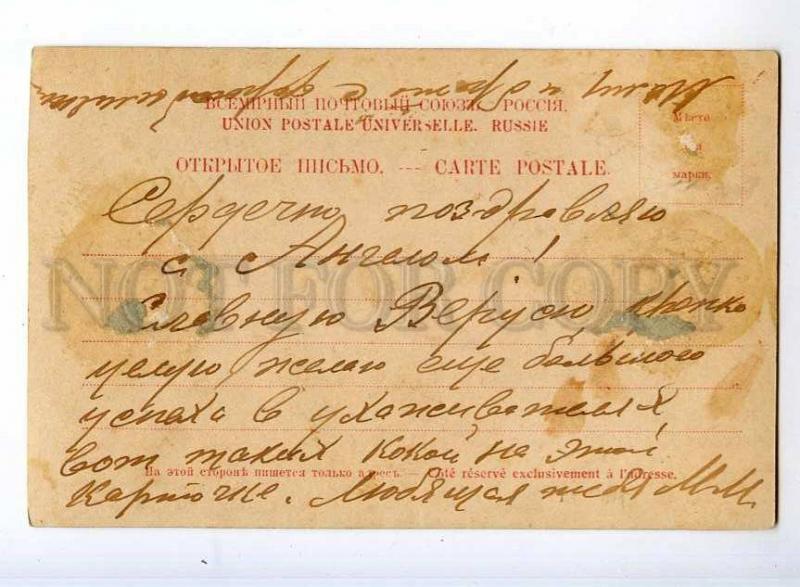 ВСЕМІРНЫЙ ПОЧТОВЫЙ СОЮЗЪ. РОССІЯ.
UNION POSTALE UNIVERSELLE. RUSSIE
ОТКРЫТОЕ ПИСЬМО. --- CARTE POSTALE.
Мѣсто
для
марки.
Сердечно поздравляю
с Ангелом!
Славную Верусю, крепко
целую желаю еще большого
успеха в ухаживателях
вот таких какой на этой
карточке. Любящая тебя М.М.
На этой сторонѣ пишется только адресъ. — Côté réservé exclusivement à l'adresse.
NOT FOR COPY